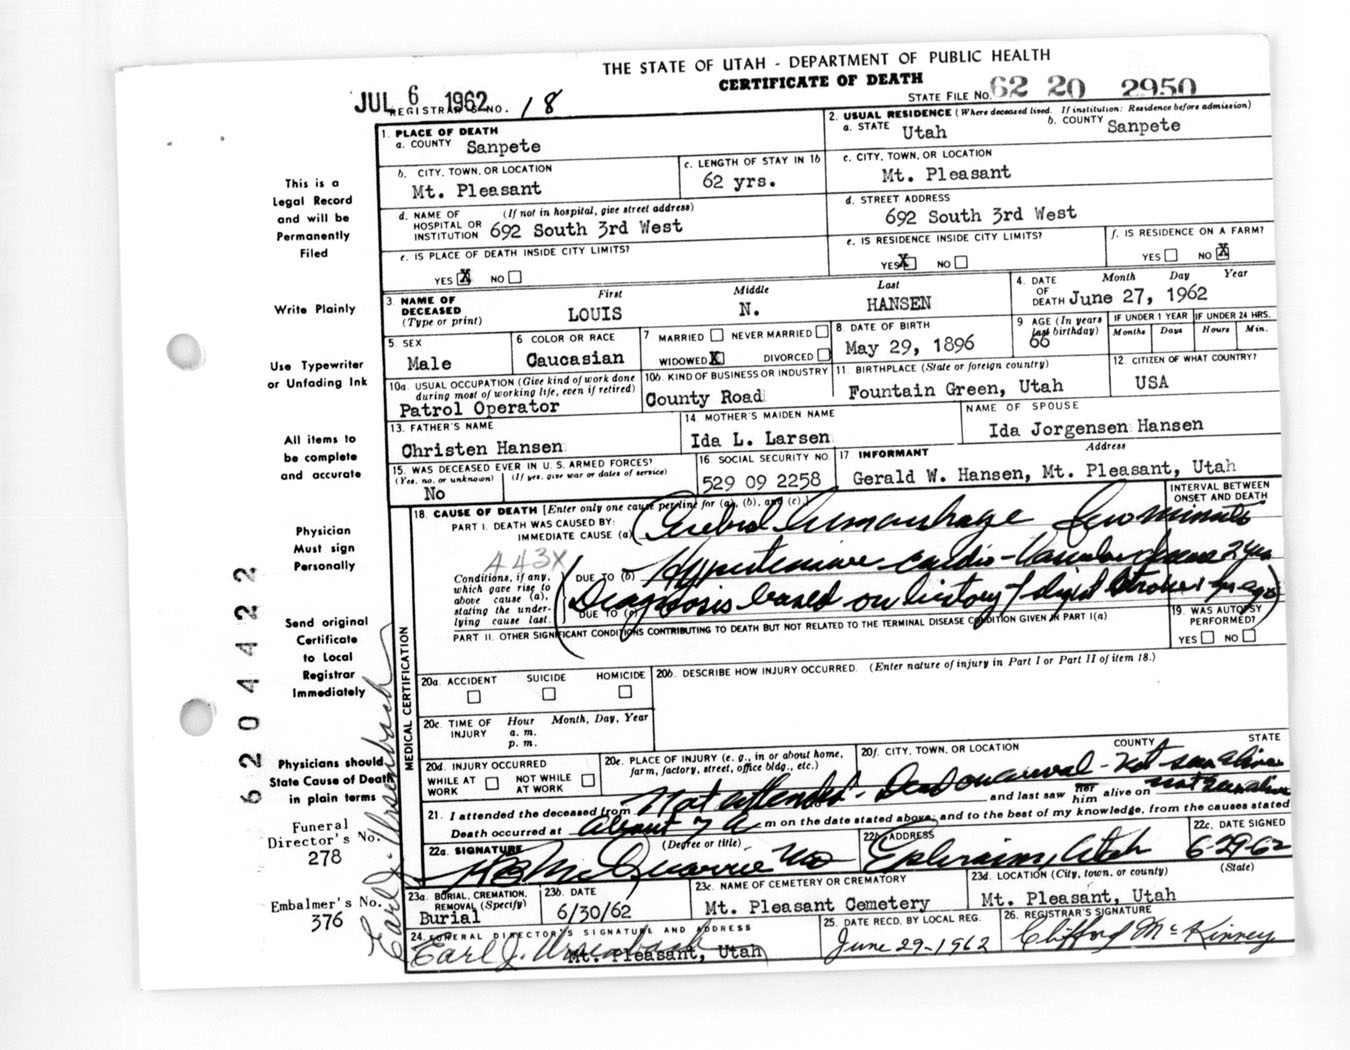 THE STATE OF UTAH - DEPARTMENT OF PUBLIC HEALTH
CERTIFICATE OF DEATH
JUL 6 1962
REGISTRAR'S NO. 18
STATE FILE NO. 62 20 2950
1. PLACE OF DEATH
a. COUNTY Sanpete
2. USUAL RESIDENCE (Where deceased lived. If institution: Residence before admission)
a. STATE Utah b. COUNTY Sanpete
b. CITY, TOWN, OR LOCATION
Mt. Pleasant
c. LENGTH OF STAY IN 1b
62 yrs.
c. CITY, TOWN, OR LOCATION
Mt. Pleasant
d. NAME OF HOSPITAL OR INSTITUTION (If not in hospital, give street address)
692 South 3rd West
d. STREET ADDRESS
692 South 3rd West
e. IS PLACE OF DEATH INSIDE CITY LIMITS?
YES X NO
e. IS RESIDENCE INSIDE CITY LIMITS?
YES X NO
f. IS RESIDENCE ON A FARM?
YES NO X
3 NAME OF DECEASED (Type or print)
First Middle Last
LOUIS N. HANSEN
4. DATE OF DEATH Month Day Year
June 27, 1962
5. SEX
Male
6 COLOR OR RACE
Caucasian
7 MARRIED NEVER MARRIED
WIDOWED X DIVORCED
8. DATE OF BIRTH
May 29, 1896
9 AGE (In years last birthday)
66
IF UNDER 1 YEAR
Months Days
IF UNDER 24 HRS.
Hours Min.
10a. USUAL OCCUPATION (Give kind of work done during most of working life, even if retired)
Patrol Operator
10b. KIND OF BUSINESS OR INDUSTRY
County Road
11. BIRTHPLACE (State or foreign country)
Fountain Green, Utah
12. CITIZEN OF WHAT COUNTRY?
USA
13. FATHER'S NAME
Christen Hansen
14 MOTHER'S MAIDEN NAME
Ida L. Larsen
NAME OF SPOUSE
Ida Jorgensen Hansen
15. WAS DECEASED EVER IN U. S. ARMED FORCES?
(Yes, no, or unknown) (If yes, give war or dates of service)
No
16. SOCIAL SECURITY NO.
529 09 2258
17 INFORMANT Address
Gerald W. Hansen, Mt. Pleasant, Utah
18. CAUSE OF DEATH [Enter only one cause per line for (a), (b), and (c).]
INTERVAL BETWEEN ONSET AND DEATH
PART I. DEATH WAS CAUSED BY:
IMMEDIATE CAUSE (a) Cerebral hemorrhage few minutes
443X
Conditions, if any, which gave rise to above cause (a), stating the underlying cause last.
DUE TO (b) Hypertensive cardio-vascular disease 2 yrs
DUE TO (c) Diagnosis based on history of slight stroke 1 yr ago
PART II. OTHER SIGNIFICANT CONDITIONS CONTRIBUTING TO DEATH BUT NOT RELATED TO THE TERMINAL DISEASE CONDITION GIVEN IN PART I(a)
19. WAS AUTOPSY PERFORMED?
YES NO
20a. ACCIDENT SUICIDE HOMICIDE
20b. DESCRIBE HOW INJURY OCCURRED. (Enter nature of injury in Part I or Part II of item 18.)
20c. TIME OF INJURY Hour Month, Day, Year
a. m.
p. m.
20d. INJURY OCCURRED
WHILE AT WORK NOT WHILE AT WORK
20e. PLACE OF INJURY (e. g., in or about home, farm, factory, street, office bldg., etc.)
20f. CITY, TOWN, OR LOCATION COUNTY STATE
21. I attended the deceased from Not attended - Dead on arrival - Not seen alive and last saw her him alive on not seen alive
Death occurred at about 7 a m on the date stated above; and to the best of my knowledge, from the causes stated
22a. SIGNATURE (Degree or title)
H B McQuarrie MD
22b. ADDRESS
Ephraim, Utah
22c. DATE SIGNED
6-29-62
23a. BURIAL, CREMATION, REMOVAL (Specify)
Burial
23b. DATE
6/30/62
23c. NAME OF CEMETERY OR CREMATORY
Mt. Pleasant Cemetery
23d. LOCATION (City, town, or county) (State)
Mt. Pleasant, Utah
24. FUNERAL DIRECTOR'S SIGNATURE AND ADDRESS
Earl J. Ursenbach
Mt. Pleasant, Utah
25. DATE RECD. BY LOCAL REG.
June 29-1962
26. REGISTRAR'S SIGNATURE
Clifford McKinney
MEDICAL CERTIFICATION
This is a
Legal Record
and will be
Permanently
Filed
Write Plainly
Use Typewriter
or Unfading Ink
All items to
be complete
and accurate
Physician
Must sign
Personally
Send original
Certificate
to Local
Registrar
Immediately
Physicians should
State Cause of Death
in plain terms
Funeral
Director's No.
278
Embalmer's No.
376
Earl J. Ursenbach
6204422